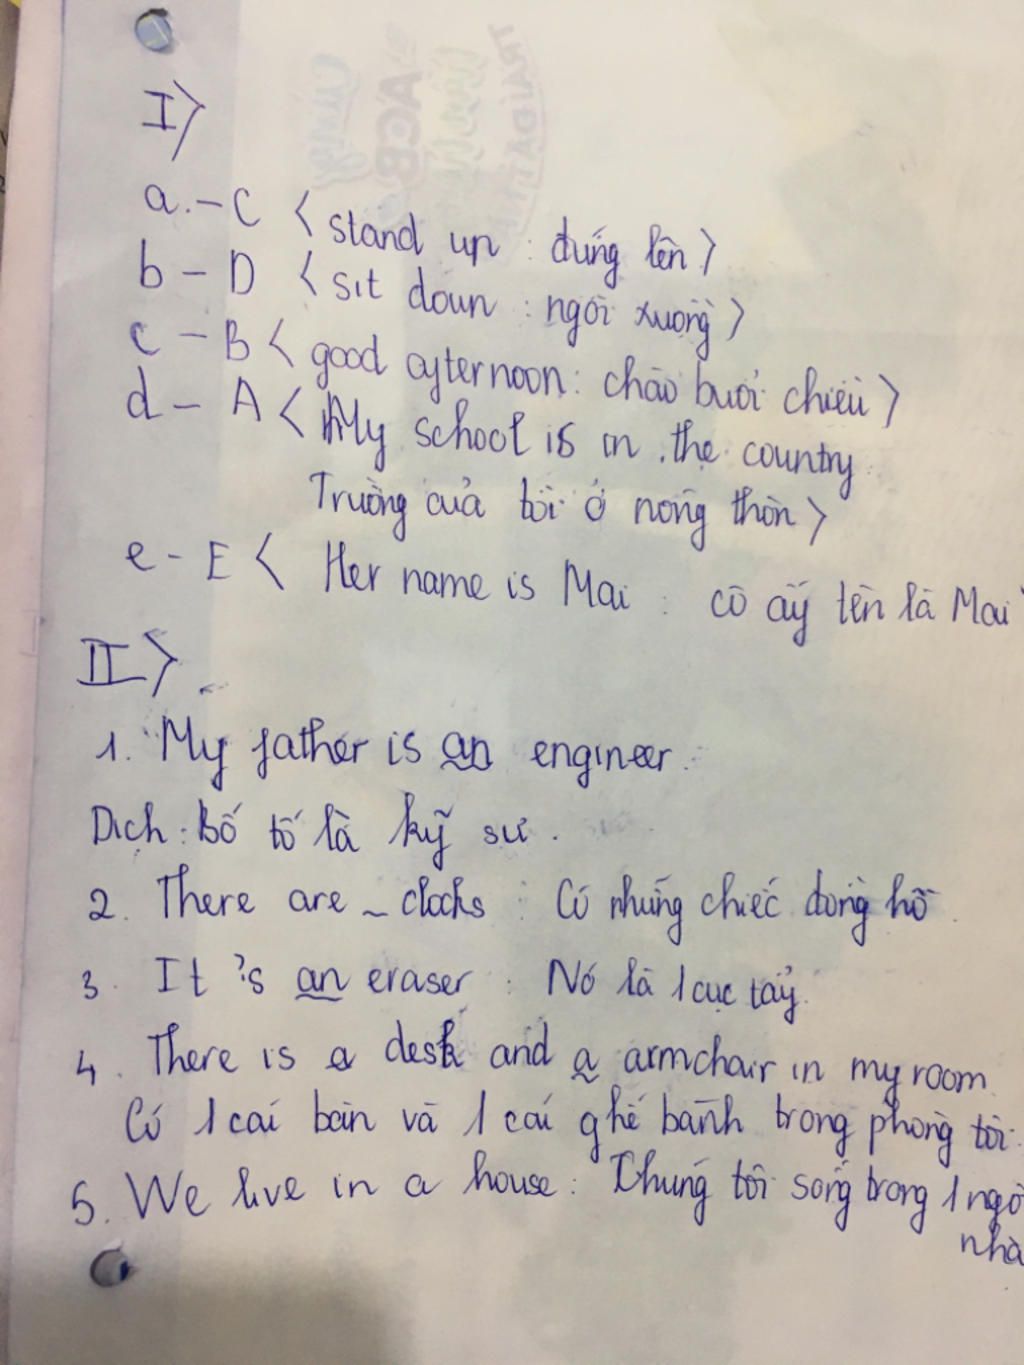 I>
a.- C < stand up : đứng lên >
b - D < sit down : ngồi xuống >
c - B < good afternoon : chào buổi chiều >
d - A < My school is in the country
Trường của tôi ở nông thôn >
e - E < Her name is Mai : cô ấy tên là Mai
II>
1. My father is an engineer.
Dịch : Bố tớ là kỹ sư .
2. There are _ clocks : Có những chiếc đồng hồ
3. It 's an eraser : Nó là 1 cục tẩy.
4. There is a desk and a armchair in my room
Có 1 cái bàn và 1 cái ghế bành trong phòng tôi.
5. We live in a house : Chúng tôi sống trong 1 ngô
nhà